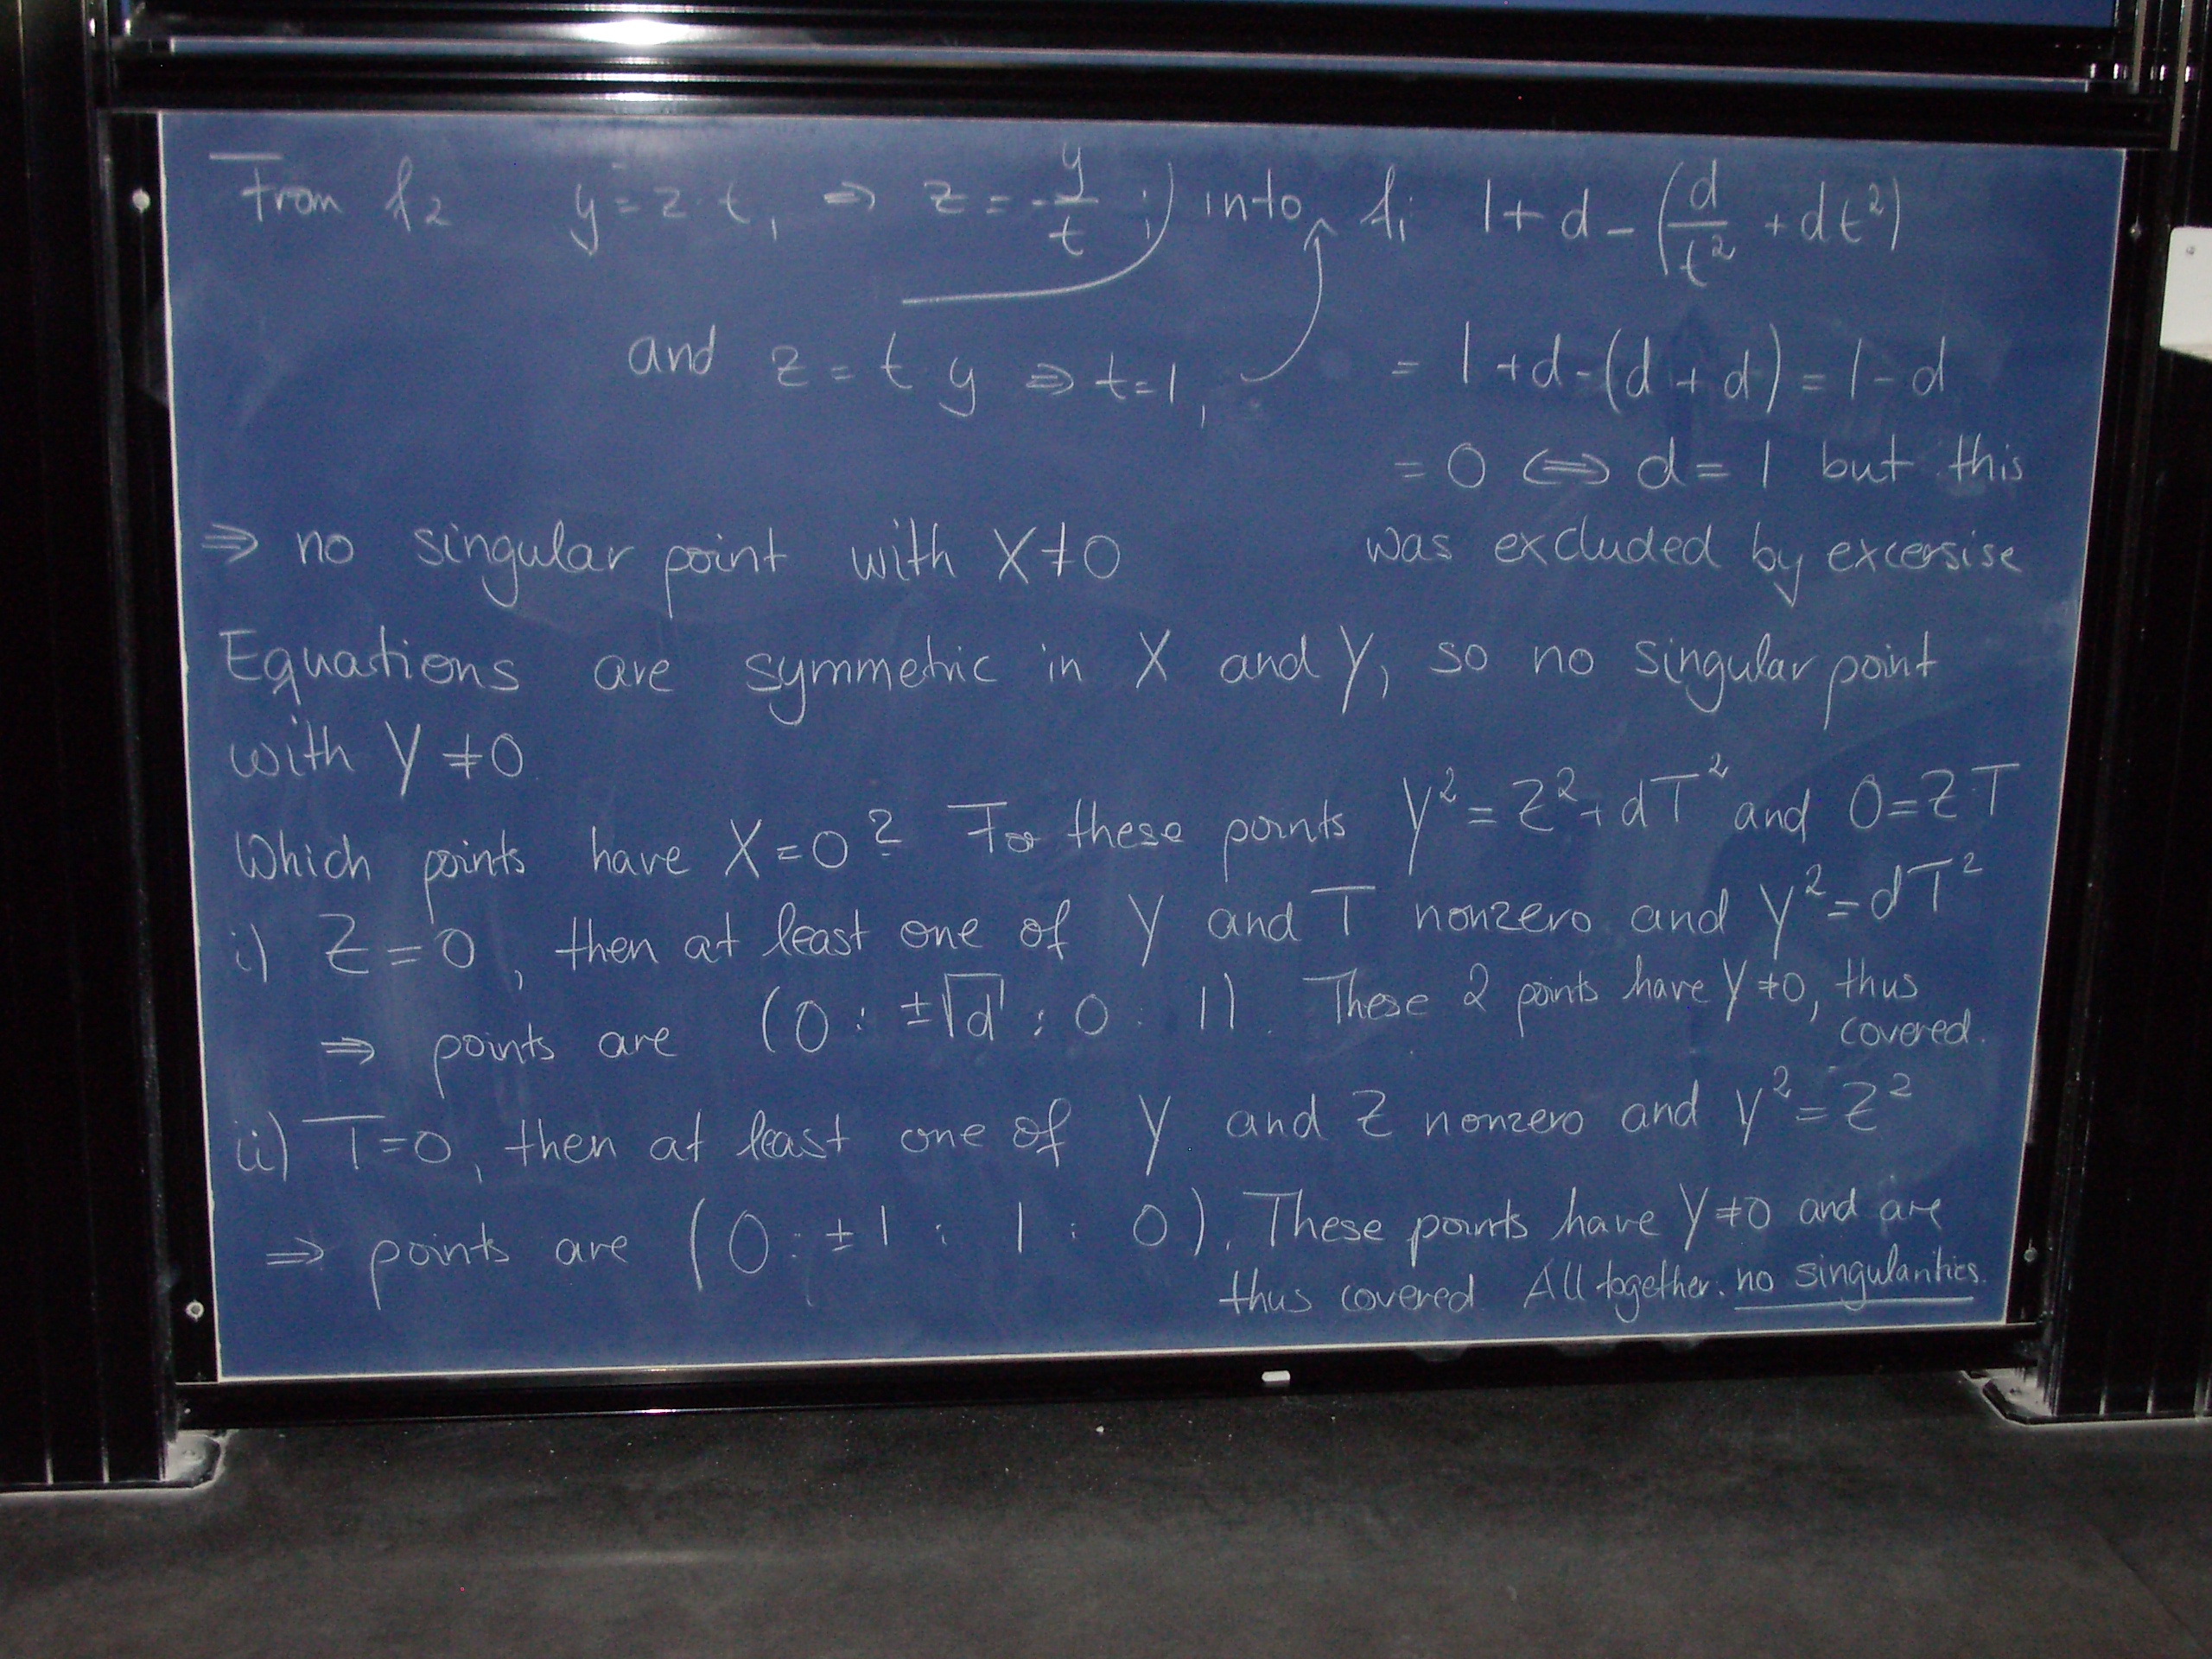 From f2 y = z·t, ⇒ z = y/t, into f1 1 + d - (d/t² + dt²)
and z = t y ⇒ t = 1, = 1 + d - (d + d) = 1 - d
= 0 ⇔ d = 1 but this
⇒ no singular point with X ≠ 0 was excluded by excersise
Equations are symmetric in X and Y, so no singular point
with Y ≠ 0
Which points have X = 0? For these points Y² = Z² + dT² and 0 = ZT
i) Z = 0, then at least one of Y and T nonzero and Y² = dT²
⇒ points are (0 : ±√d : 0 : 1). These 2 points have Y ≠ 0, thus
covered.
ii) T = 0, then at least one of Y and Z nonzero and Y² = Z²
⇒ points are (0 : ±1 : 1 : 0). These points have Y ≠ 0 and are
thus covered. All together: no singularities.